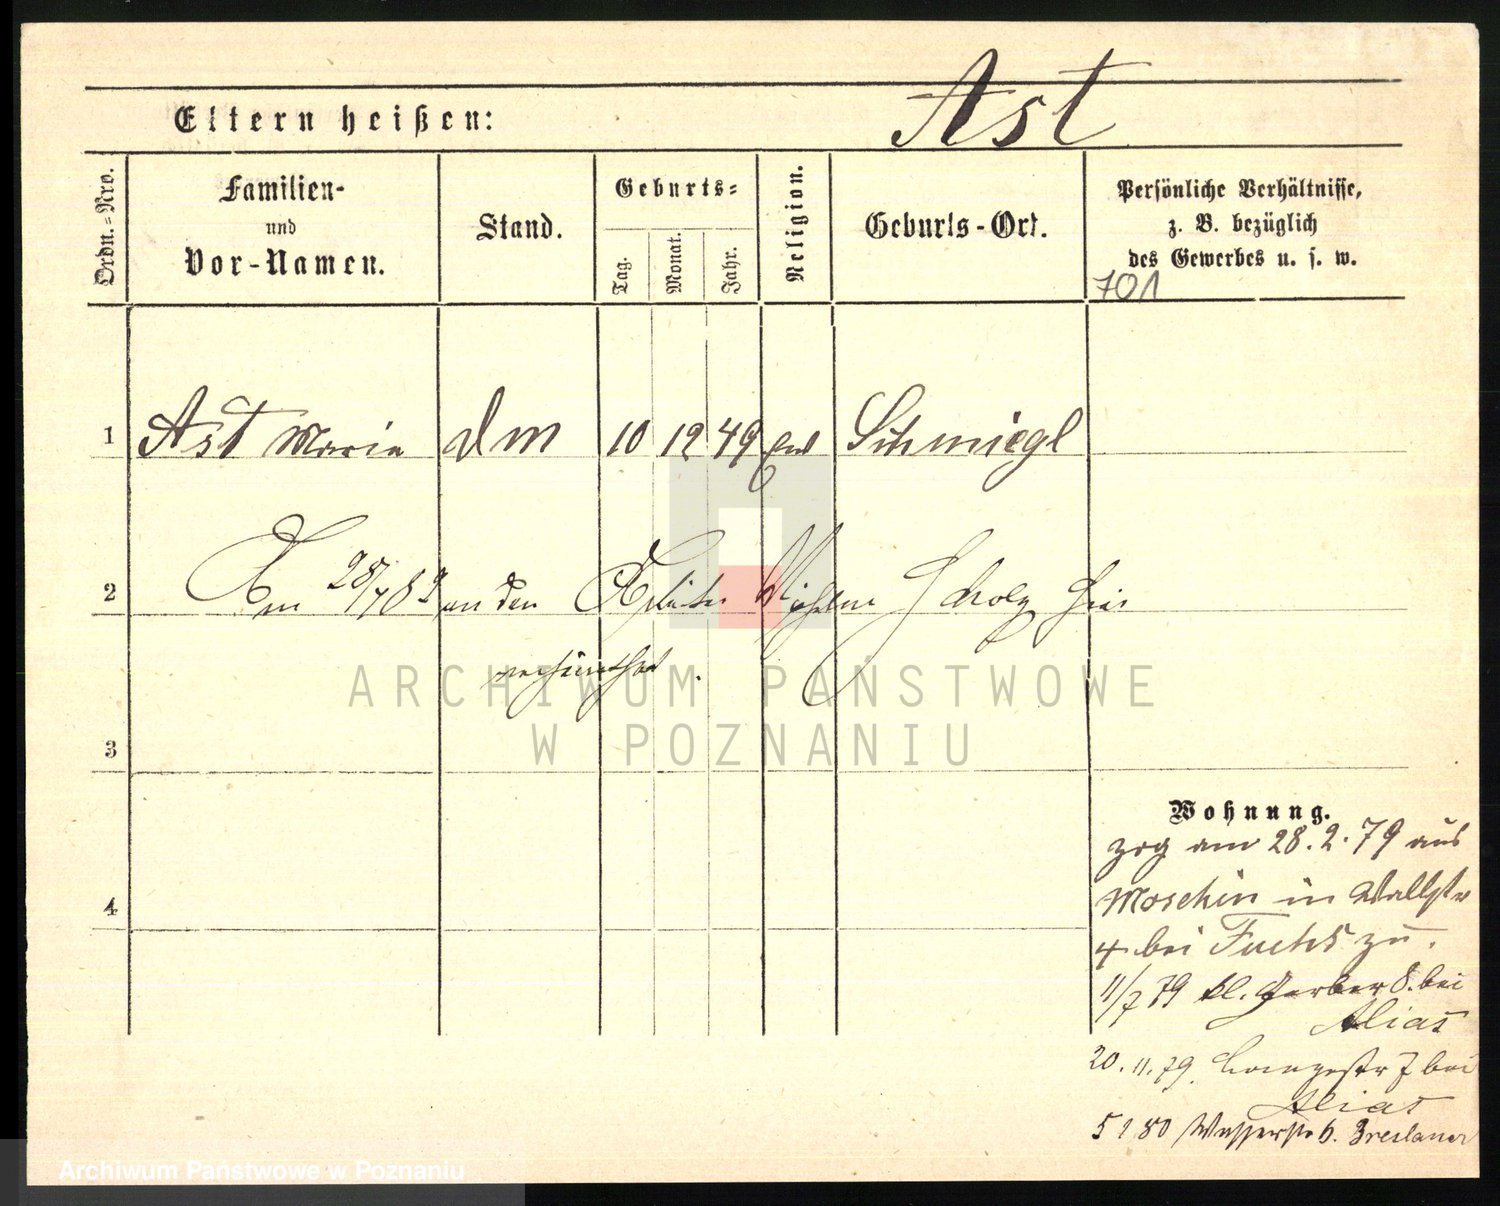 Ast
Eltern heißen:
Ordn.=Nro.
Familien-
und
Vor-Namen.
Stand.
Geburts=
Tag.
Monat.
Jahr.
Religion.
Geburts-Ort.
Persönliche Verhältnisse,
z. B. bezüglich
des Gewerbes u. s. w.
701
1 Ast Maria dm 10 12 49 Schmiegl
2 Am an den Scholz hier
verheirathet.
ARCHIWUM PAŃSTWOWE
W POZNANIU
3
4
Wohnung.
zog am 28.2.79 aus
Moschin in Wallstr
4 bei Fuchs zu.
11/7 79 kl. Gerber 8. bei
Alias
20.11.79. Langestr 7 bei
Alias
5 1 80 Wasserstr 6. Breslauer
Archiwum Państwowe w Poznaniu